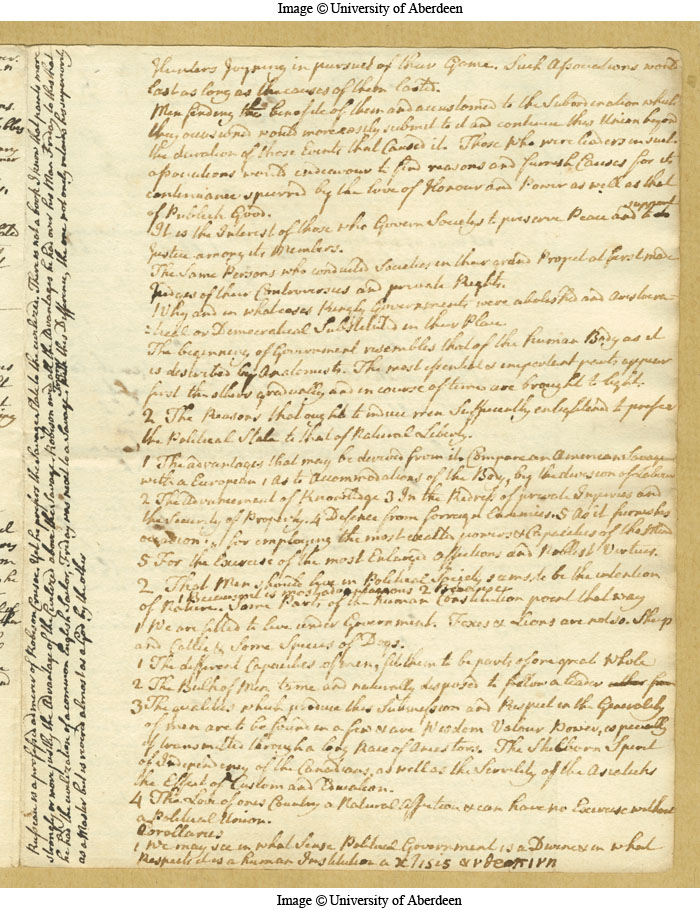 Image © University of Aberdeen
Hunters Joyning in pursuet of their Game. Such Associations would
last as long as the causes of them lasted.
Men finding the benefite of them and accustomed to the Subordination which
they occasioned would more easily submit to it and continue this Union beyond
the duration of those Events that Caused it. Those who were leaders in such
associations would endeavour to find reasons and furnish Causes for its
continuance spurred by the love of Honour and Power as well as that
of Publick Good.
It is the Interest of those who Govern Societys to preserve Peace and to support
Justice among its Members.
The Same Persons who conducted Societies in their grand Project at first made
Judges of their Controversies and private Rights.
Why and in what cases Kingly Governments were abolished and Aristocra
:tical or Democratical Substituted in their Place.
The beginning of Government resembles that of the human Body as it
is described by Anatomists. The most essential & important parts appear
first the others gradually and in course of time are brought to light.
2 The Reasons that ought to induce men Sufficiently enlightend to prefer
the Political State to that of Natural Liberty.
1 The advantages that may be derived from it. Compare an American Savage
with a European 1 As to Accommodations of the Body, by the division of Labour
2 The Advancement of Knowledge 3 In the Redress of private Injuries and
the Security of Property. 4 Defence from forreign Enemies. 5 As it furnishes
occasion for employing the most powers & Capacities of the Mind
5 For the Exercise of the most Enlarged Affections and Noblest Virtues.
2 That Men should live in Political Society seems to be the intention
1 Because it is most advantageous 2
of Nature. Some Parts of the Human Constitution point that way
1 We are fitted to live under Government. Foxes & Lions are not so. Sheep
and Cattle & Some Species of Dogs.
1 The different Capacities of men, fit them to be parts of one great Whole
2 The Bulk of Men tame and naturally disposed to follow a leader
3 The qualities which produce this Submission and Respect in the Generality
of men are to be found in a few & are Wisdom Valour Power, especially
if transmitted through a long Race of Ancestors. The Stubborn Spirit
of Independency of the Canadians, as well as the Servility of the Asiaticks
the Effect of Custom and Education.
4 The Love of ones Country a Natural Affection & can have no Exercise without
a Political Union.
Corollaries
1 We may see in what Sense Political Government is a Divine & in what
Respects it is a human Institution a
Russeau is a professed admirer of Robison Crusoe. Yet he prefers the Savage State to the civilized. There is not a book I know that paints more
strongly or more justly the Advantage of the civilized above the Savage. Robison had all the Advantages he had over his Man Friday to this that
he had the civilization of a common English Sailor, Friday was used to a Savage. With this Difference the one not only retains his superiority
as a Master but is revered almost as a God by the other
Image © University of Aberdeen